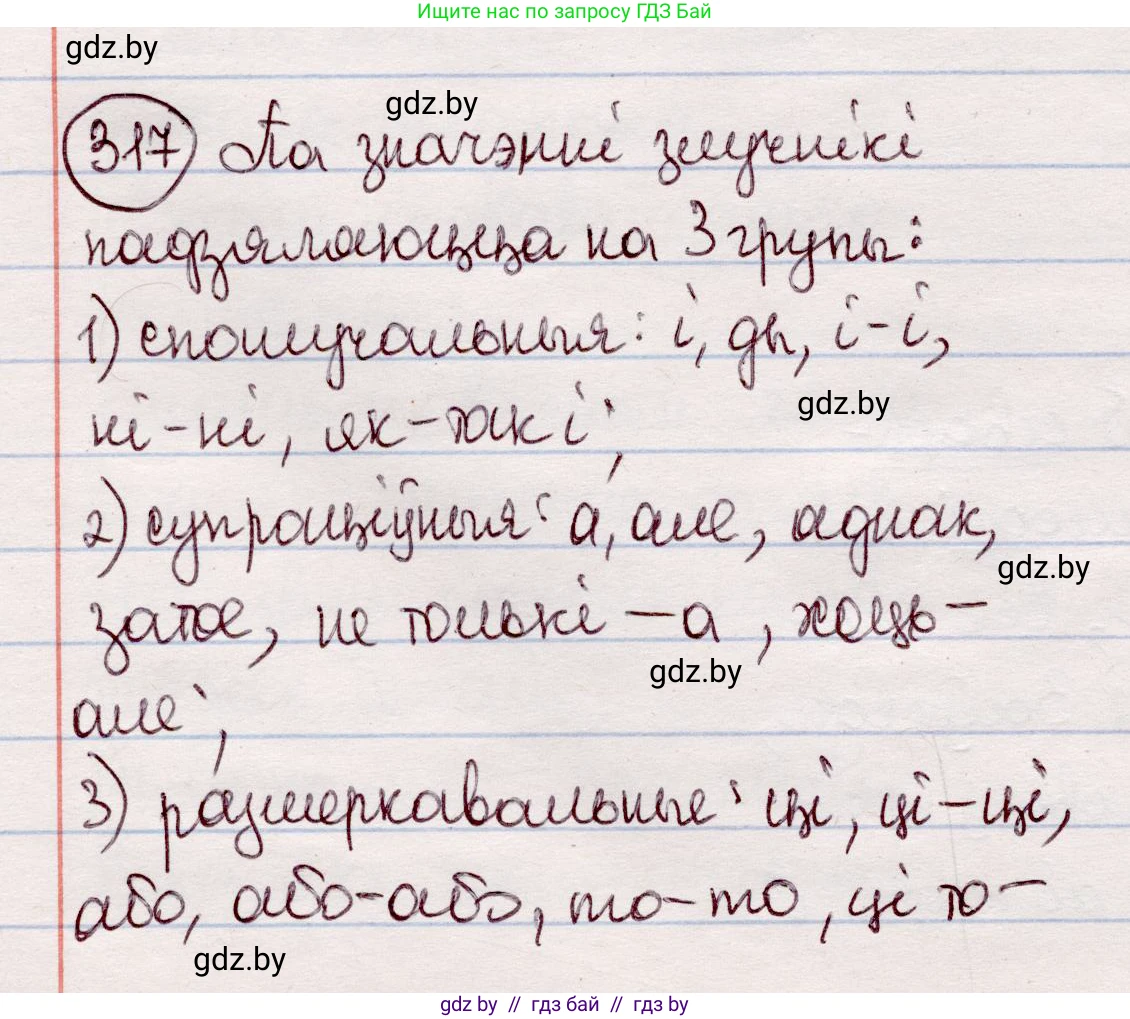 Ищите нас по запросу ГДЗ Бай
gdz.by
gdz.by
317 Па значэнні злучнікі
падзяляюцца на 3 групы:
1) спалучальныя: і, ды, і-і,
gdz.by
ні-ні, як-так і;
2) супраціўныя: а, але, аднак,
gdz.by
затое, не толькі - а, хоць-
gdz.by
але;
3) размеркавальные: ці, ці-ці,
або, або-або, то-то, ці то-
gdz.by
gdz by // гдз бай // гдз by